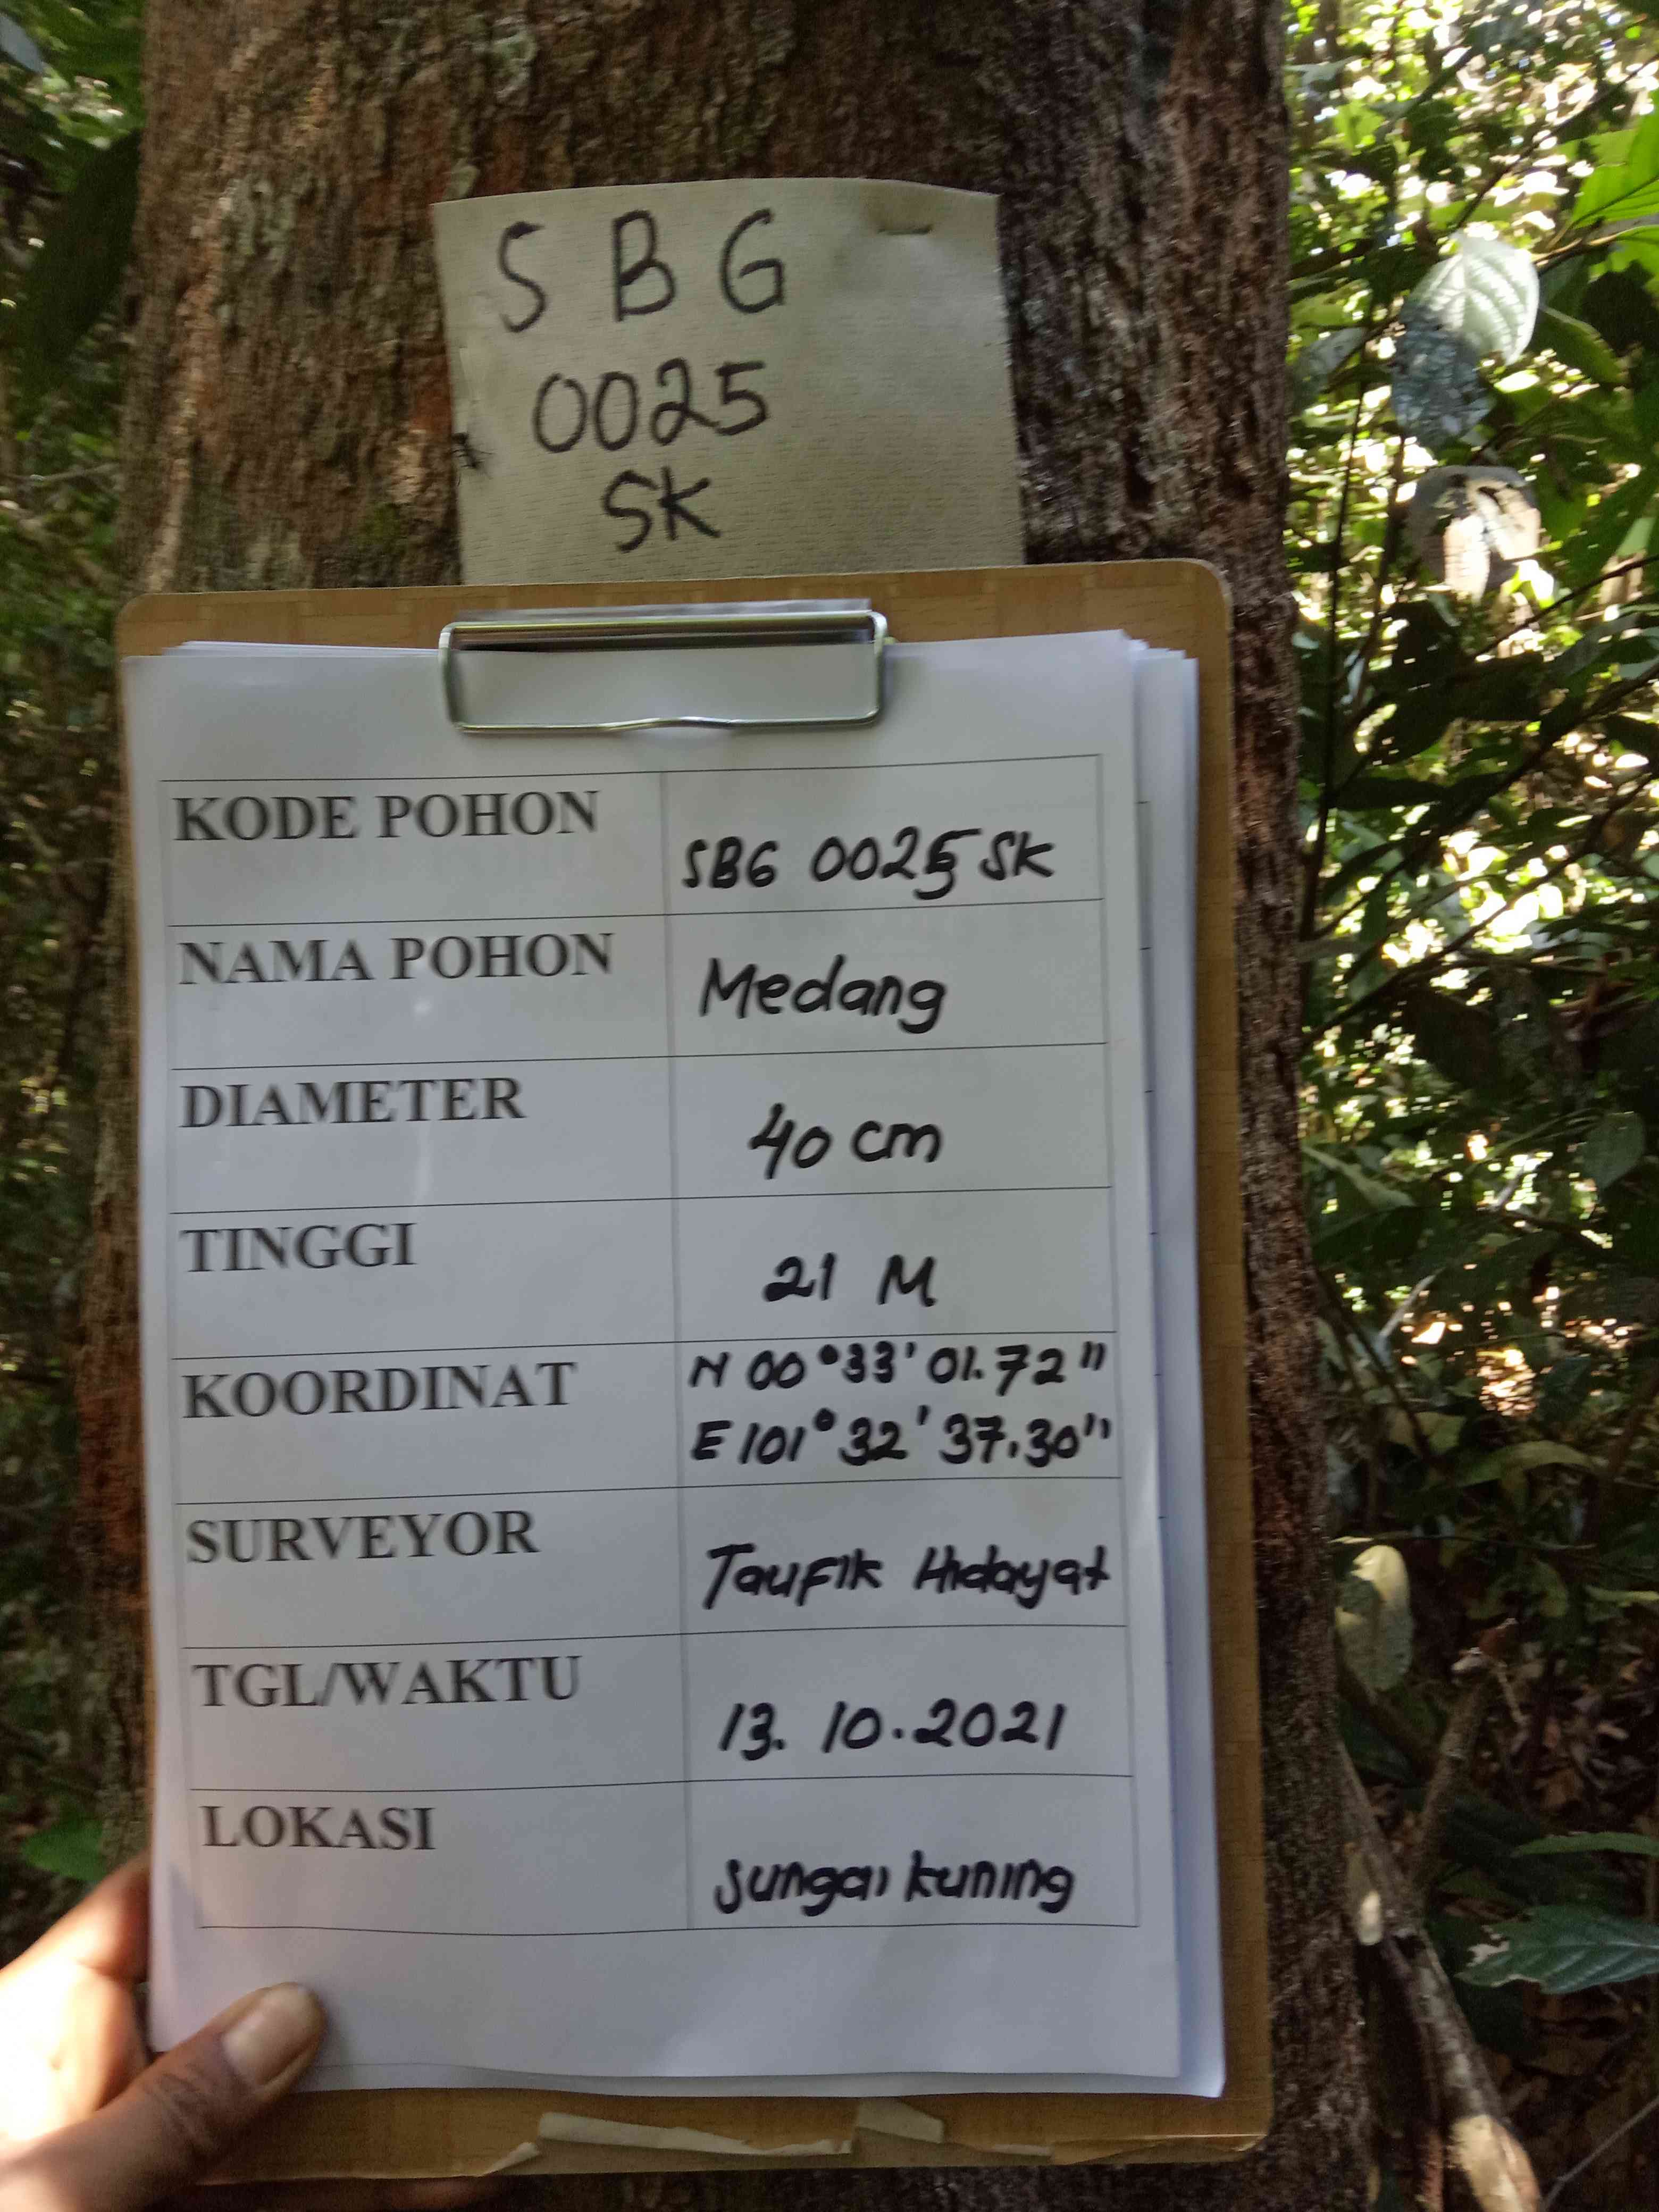 SBG
0025
SK
KODE POHON
SBG 0025 SK
NAMA POHON
Medang
DIAMETER
40 cm
TINGGI
21 M
KOORDINAT
N 00°33'01.72"
E 101°32'37.30"
SURVEYOR
Taufik Hidayat
TGL/WAKTU
13. 10.2021
LOKASI
Sungai kuning